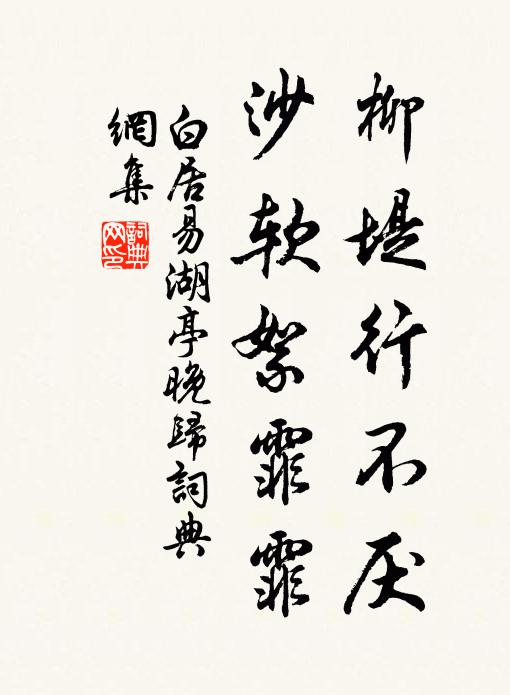 柳堤行不厌
沙软絮霏霏
白居易湖亭晚歸詞典
網集
詞典网印